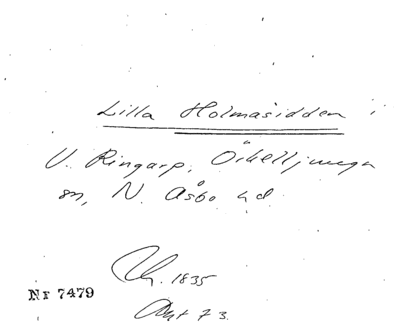 Lilla Holmasidden i
V. Ringarp, Örkelljunga
sn, N. Åsbo hd
1835
Nr 7479
Akt 73.